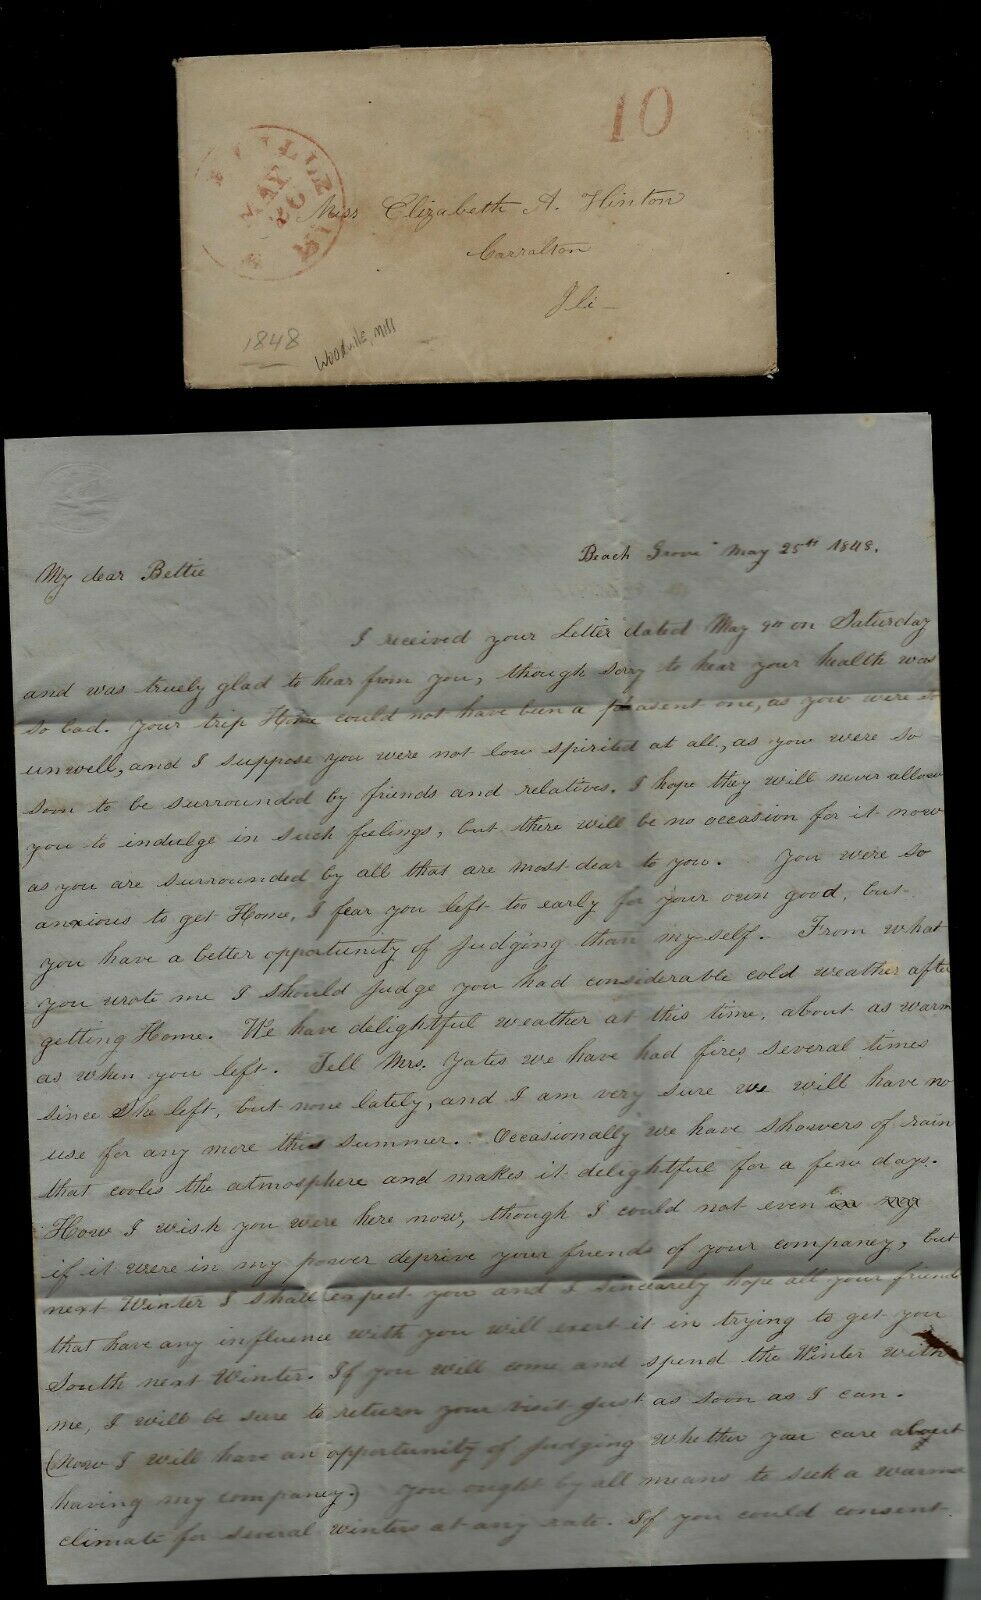 10
VILLE
MAY
26
MI
Miss Elizabeth A. Hinton
Carralton
Ili
1848
Woodville, Miss
Beach Grove May 25th 1848.
My dear Bettie
I received your Letter dated May 9th on Saturday
and was truely glad to hear from you, though sorry to hear your health was
so bad. Your trip Home could not have been a pleasent one, as you were so
unwell, and I suppose you were not low spirited at all, as you were so
soon to be surrounded by friends and relatives. I hope they will never allow
you to indulge in such feelings, but there will be no occasion for it now
as you are surrounded by all that are most dear to you. You were so
anxious to get Home, I fear you left too early for your own good, but
you have a better opportunity of judging than my self. From what
you wrote me I should judge you had considerable cold weather after
getting Home. We have delightful weather at this time, about as warm
as when you left. Tell Mrs. Yates we have had fires several times
since She left, but none lately, and I am very sure we will have no
use for any more this summer. Occasionally we have showers of rain
that cooles the atmosphere and makes it delightful for a few days.
How I wish you were here now, though I could not even in my
if it were in my power deprive your friends of your companey, but
next Winter I shall expect you and I sincearely hope all your friend
that have any influence with you will exert it in trying to get you
South next Winter. If you will come and spend the Winter with
me, I will be sure to return your visit just as soon as I can.
(Now I will have an opportunity of judging whether you care about
having my companey.) You ought by all means to seek a warme
climate for several winters at any rate. If you could consent